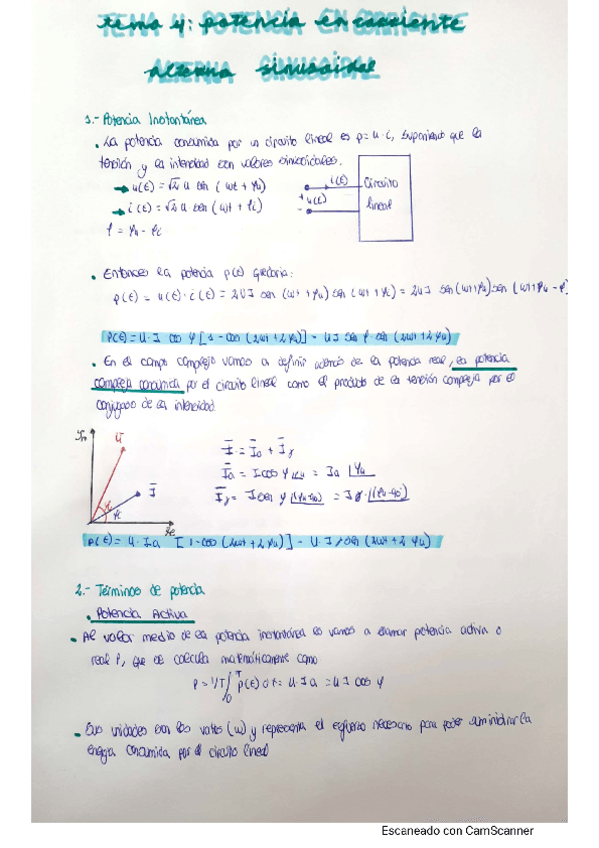 tema 4: potencia en corriente
alterna sinusoidal
1.- Potencia Instantánea
• La potencia consumida por un circuito lineal es p = u · i, suponiendo que la
tensión y la intensidad son valores sinusoidales.
→ u(t) = √2 u sen (wt + φu)
→ i(t) = √2 u sen (wt + φi)
φ = φu - φi
i(t)
+ u(t)
-
Circuito
lineal
• Entonces la potencia p(t) quedaría:
p(t) = u(t) · i(t) = 2UI sen (wt + φu) sen (wt + φi) = 2UI sen (wt + φu) sen (wt + φu - φ)
p(t) = U · I cos φ [1 - cos (2wt + 2φu)] - UI sen φ · sen (2wt + 2φu)
• En el campo complejo vamos a definir además de la potencia real, la potencia
compleja consumida por el circuito lineal como el producto de la tensión compleja por el
conjugado de la intensidad.
Im
U
I
φ
Re
I = Ia + Ir
Ia = I cos φ |φu = Ia |φu
Ir = I sen φ |(φu-90) = Ir · |(φu-90)
p(t) = U · Ia [1 - cos (2wt + 2φu)] - U · Ir sen (2wt + 2φu)
2.- Términos de potencia
• Potencia Activa
• Al valor medio de la potencia instantánea es vamos a llamar potencia activa o
real P, que se calcula matemáticamente como
P = 1/T ∫₀ᵀ p(t) dt = U · Ia = U I cos φ
• Sus unidades son los vatios (w) y representa el esfuerzo necesario para poder suministrar la
energía consumida por el circuito lineal
Escaneado con CamScanner